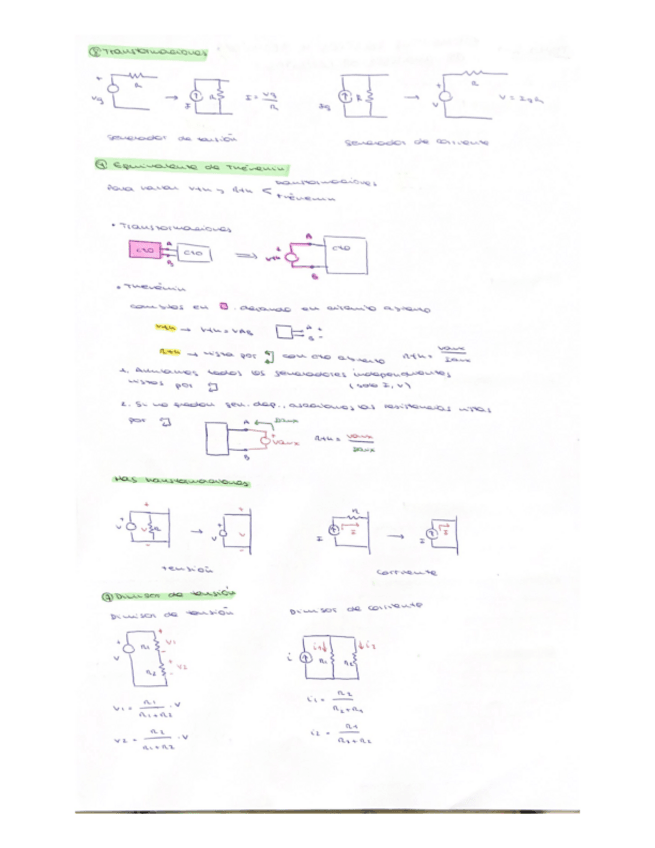 ⑧ Transformaciones
+ R Vg → I R I = Vg/R
Ig R → + V R V = Ig R
Generador de tensión
Generador de corriente
⑨ Equivalente de Thévenin
Para hallar Vth y Rth < transformaciones
thévenin
• Transformaciones
CTO A B CTO ⇒ + Vth A B CTO
• Thévenin
dejando en circuito abierto
Vth → Vth = VAB A + B -
Rth → vista por con cto abierto Rth = Vaux/Iaux
1. Anulamos todos los generadores independientes
vistos por (solo I, V)
2. Si no quedan gen. dep., asociamos las resistencias vistas
por A Iaux + Vaux B Rth = Vaux/Iaux
Más transformaciones
+ V + V R - → + V + V -
I R I → I I
tensión
corriente
⑨ Divisor de tensión
Divisor de tensión
Divisor de corriente
+ V R1 + V1 - R2 + V2 -
i i1 R1 R2 i2
V1 = R1/(R1+R2) · V
i1 = R2/(R2+R1)
V2 = R2/(R1+R2) · V
i2 = R1/(R1+R2)